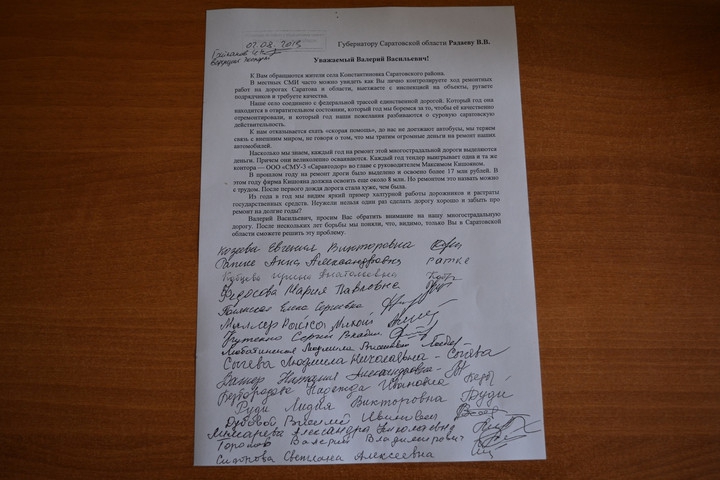 02.08.2018
Губернатору Саратовской области Радаеву В.В.
Уважаемый Валерий Васильевич!
К Вам обращаются жители села Константиновка Саратовского района.
В местных СМИ часто можно увидеть как Вы лично контролируете ход ремонтных
работ на дорогах Саратова и области, выезжаете с инспекцией на объекты, ругаете
подрядчиков и требуете качества.
Наше село соединено с федеральной трассой единственной дорогой. Который год она
находится в отвратительном состоянии, который год мы боремся за то, чтобы её качественно
отремонтировали, и который год наши пожелания разбиваются о суровую саратовскую
действительность.
К нам отказывается ехать «скорая помощь», до нас не доезжают автобусы, мы теряем
связь с внешним миром, не говоря о том, что мы тратим огромные деньги на ремонт наших
автомобилей.
Насколько мы знаем, каждый год на ремонт этой многострадальной дороги выделяются
деньги. Причем они великолепно осваиваются. Каждый год тендер выигрывает одна и та же
контора — ООО «СМУ-3 «Саратовдор» во главе с руководителем Максимом Кишояном.
В прошлом году на ремонт дроги было выделено и освоено более 17 млн рублей. В
этом году фирма Кишояна должна освоить еще около 8 млн. Но ремонтом это назвать можно
с трудом. После первого дождя дорога стала хуже, чем была.
Из года в год мы видим яркий пример халтурной работы дорожников и растраты
государственных средств. Неужели нельзя один раз сделать дорогу хорошо и забыть про
ремонт на долгие годы?
Валерий Васильевич, просим Вас обратить внимание на нашу многострадальную
дорогу. После нескольких лет борьбы мы поняли, что, видимо, только Вы в Саратовской
области сможете решить эту проблему.
Евгения Викторовна
Анна Александровна
Ирина Анатольевна
Федосова Мария Павловна
Елена Сергеевна
Миллер
Сергей
Людмила
Сычева Людмила Николаевна - Сычева
Вагнер Наталия Александровна -
Надежда Ивановна
Руди Лидия Викторовна Руди
Дубовой Василий Иванович
Александра Николаевна
Валерий Владимирович
Сидорова Светлана Алексеевна